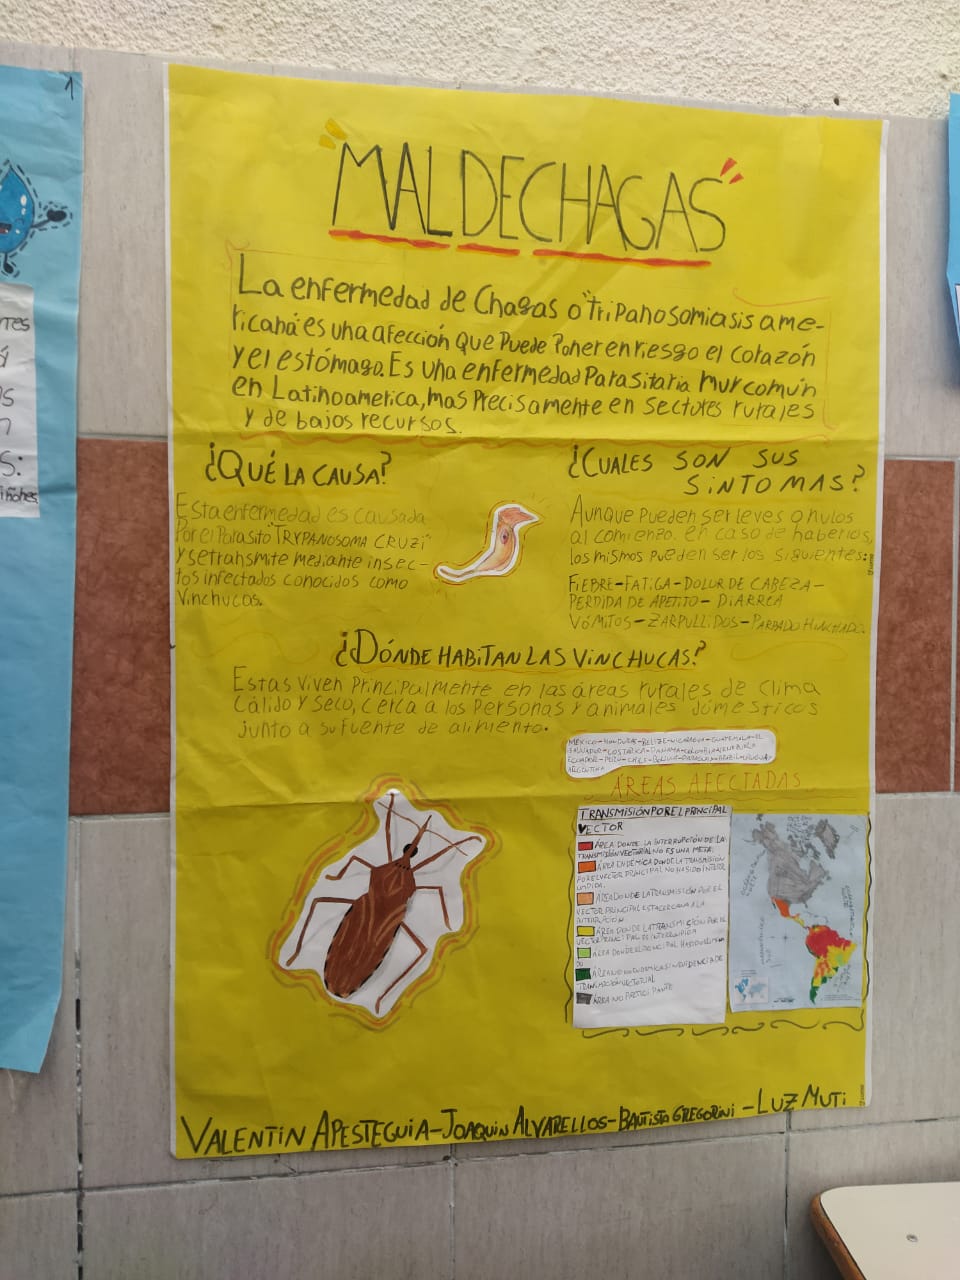 "MAL DE CHAGAS"
La enfermedad de Chagas o "Tripanosomiasis ame-
ricana" es una afección que puede poner en riesgo el corazón
y el estómago. Es una enfermedad parasitaria muy común
en Latinoamerica, mas precisamente en sectores rurales
y de bajos recursos.
¿QUÉ LA CAUSA?
Esta enfermedad es causada
por el parasito "TRYPANOSOMA CRUZI"
y se transmite mediante insec-
tos infectados conocidos como
vinchucas.
¿CUALES SON SUS
SINTOMAS?
Aunque pueden ser leves o nulos
al comienzo. en caso de haberlos,
los mismos pueden ser los siguientes:
FIEBRE-FATIGA-DOLOR DE CABEZA-
PERDIDA DE APETITO-DIARREA
VÓMITOS-ZARPULLIDOS-PARPADO HINCHADO.
¿DÓNDE HABITAN LAS VINCHUCAS?
Estas viven principalmente en las áreas rurales de clima
cálido y seco, cerca a las personas y animales domesticos
junto a su fuente de alimento.
MÉXICO-HONDURAS-BELIZE-NICARAGUA-GUATEMALA-EL
SALVADOR-COSTA RICA-PANAMA-COLOMBIA-VENEZUELA
ECUADOR-PERU-CHILE-BOLIVIA-PARAGUAY-BRASIL-URUGUAY
ARGENTINA
ÁREAS AFECTADAS
TRANSMISIÓN POR EL PRINCIPAL
VECTOR
ÁREA DONDE LA INTERRUPCIÓN DE LA
TRANSMISIÓN VECTORIAL NO ES UNA META
ÁREA ENDÉMICA DONDE LA TRANSMISIÓN
POR EL VECTOR PRINCIPAL NO HA SIDO INTERR
UMPIDA
ÁREA DONDE LA TRANSMISIÓN POR EL
VECTOR PRINCIPAL ESTA CERCANA A LA
ÁREA DONDE LA TRANSMISIÓN POR EL
VECTOR PRINCIPAL ES INTERRUMPIDA
ÁREA DONDE EL
ÁREA NO ENDEMICA SIN EVIDENCIA DE
TRANSMISIÓN VECTORIAL
ÁREA NO PARTICIPANTE
VALENTIN APESTEGUIA-JOAQUIN ALVARELLOS-BAUTISTA GREGORINI-LUZ MUTI
1